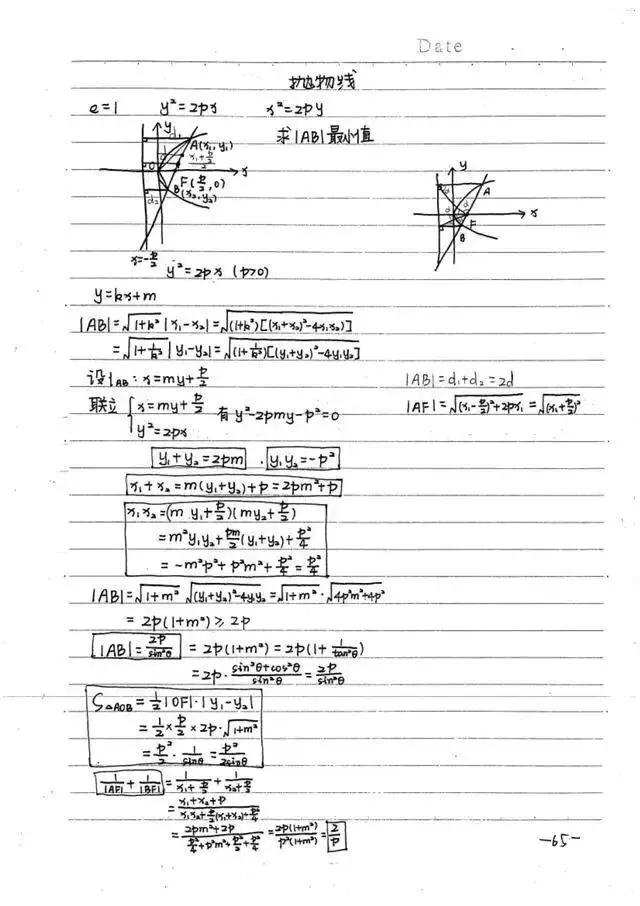 Date
抛物线
e=1 y²=2px x²=2py
求|AB|最小值
y
d₁
A(x₁, y₁)
d
(x₁+p/2)/2
O
x
F(p/2, 0)
d₂
B(x₂, y₂)
x=-p/2
y²=2px (p>0)
y
A
d
d
x
F
B
y=kx+m
|AB|=√(1+k²)|x₁-x₂|=√((1+k²)[(x₁+x₂)²-4x₁x₂)]
=√(1+1/k²)|y₁-y₂|=√((1+1/k²)[(y₁+y₂)²-4y₁y₂]
设l_AB: x=my+p/2
|AB|=d₁+d₂=2d
联立 { x=my+p/2 y²=2px 有 y²-2pmy-p²=0
|AF|=√((x₁-p/2)²+2px₁)=√(x₁+p/2)²
y₁+y₂=2pm . y₁y₂=-p²
x₁+x₂=m(y₁+y₂)+p=2pm²+p
x₁x₂=(my₁+p/2)(my₂+p/2)
=m²y₁y₂+pm/2(y₁+y₂)+p²/4
=-m²p²+p²m²+p²/4=p²/4
|AB|=√(1+m²)√((y₁+y₂)²-4y₁y₂)=√(1+m²)·√(4p²m²+4p²)
=2p(1+m²)≥2p
|AB|=2p/sin²θ =2p(1+m²)=2p(1+1/tan²θ)
=2p·(sin²θ+cos²θ)/sin²θ=2p/sin²θ
S△AOB=1/2|OF|·|y₁-y₂|
=1/2×p/2×2p·√(1+m²)
=p²/2·1/sinθ=p²/2sinθ
1/|AF|+1/|BF|=1/(x₁+p/2)+1/(x₂+p/2)
=(x₁+x₂+p)/(x₁x₂+p/2(x₁+x₂)+p²/4)
=(2pm²+2p)/(p²/4+p²m²+p²/2+p²/4)=2p(1+m²)/p²(1+m²)=2/p
-65-